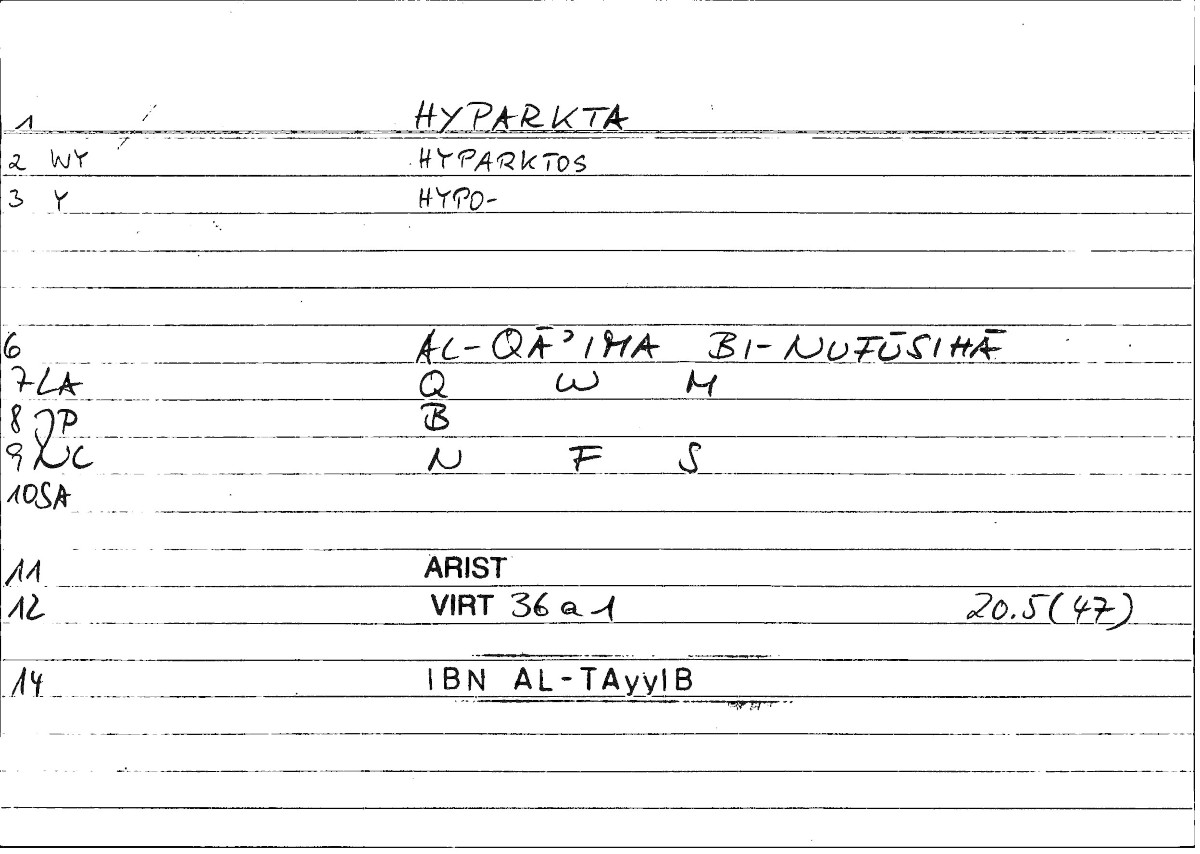 1 HYPARKTA
2 WY HYPARKTOS
3 Y HYPO-
6 AL-QĀʾIMA BI-NUFŪSIHĀ
7 LA Q W M
8 JP B
9 NC N F S
10 SA
11 ARIST
12 VIRT 36 a 1 20.5 (47)
14 IBN AL-TAyyIB